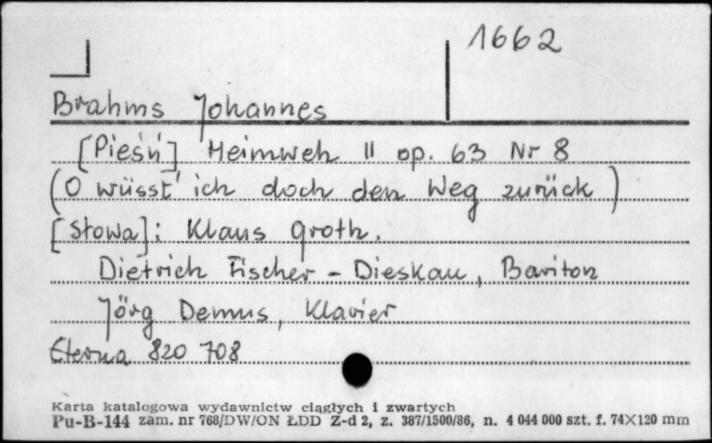 1662
Brahms Johannes
[Pieśń] Heimweh II op. 63 Nr 8
(O wüsst' ich doch den Weg zurück)
[Słowa]: Klaus Groth.
Dietrich Fischer - Dieskau, Bariton
Jörg Demus, Klavier
Eterna 820 708
Karta katalogowa wydawnictw ciągłych i zwartych
Pu-B-144 zam. nr 768/DW/ON ŁDD Z-d 2, z. 387/1500/86, n. 4 044 000 szt. f. 74×120 mm